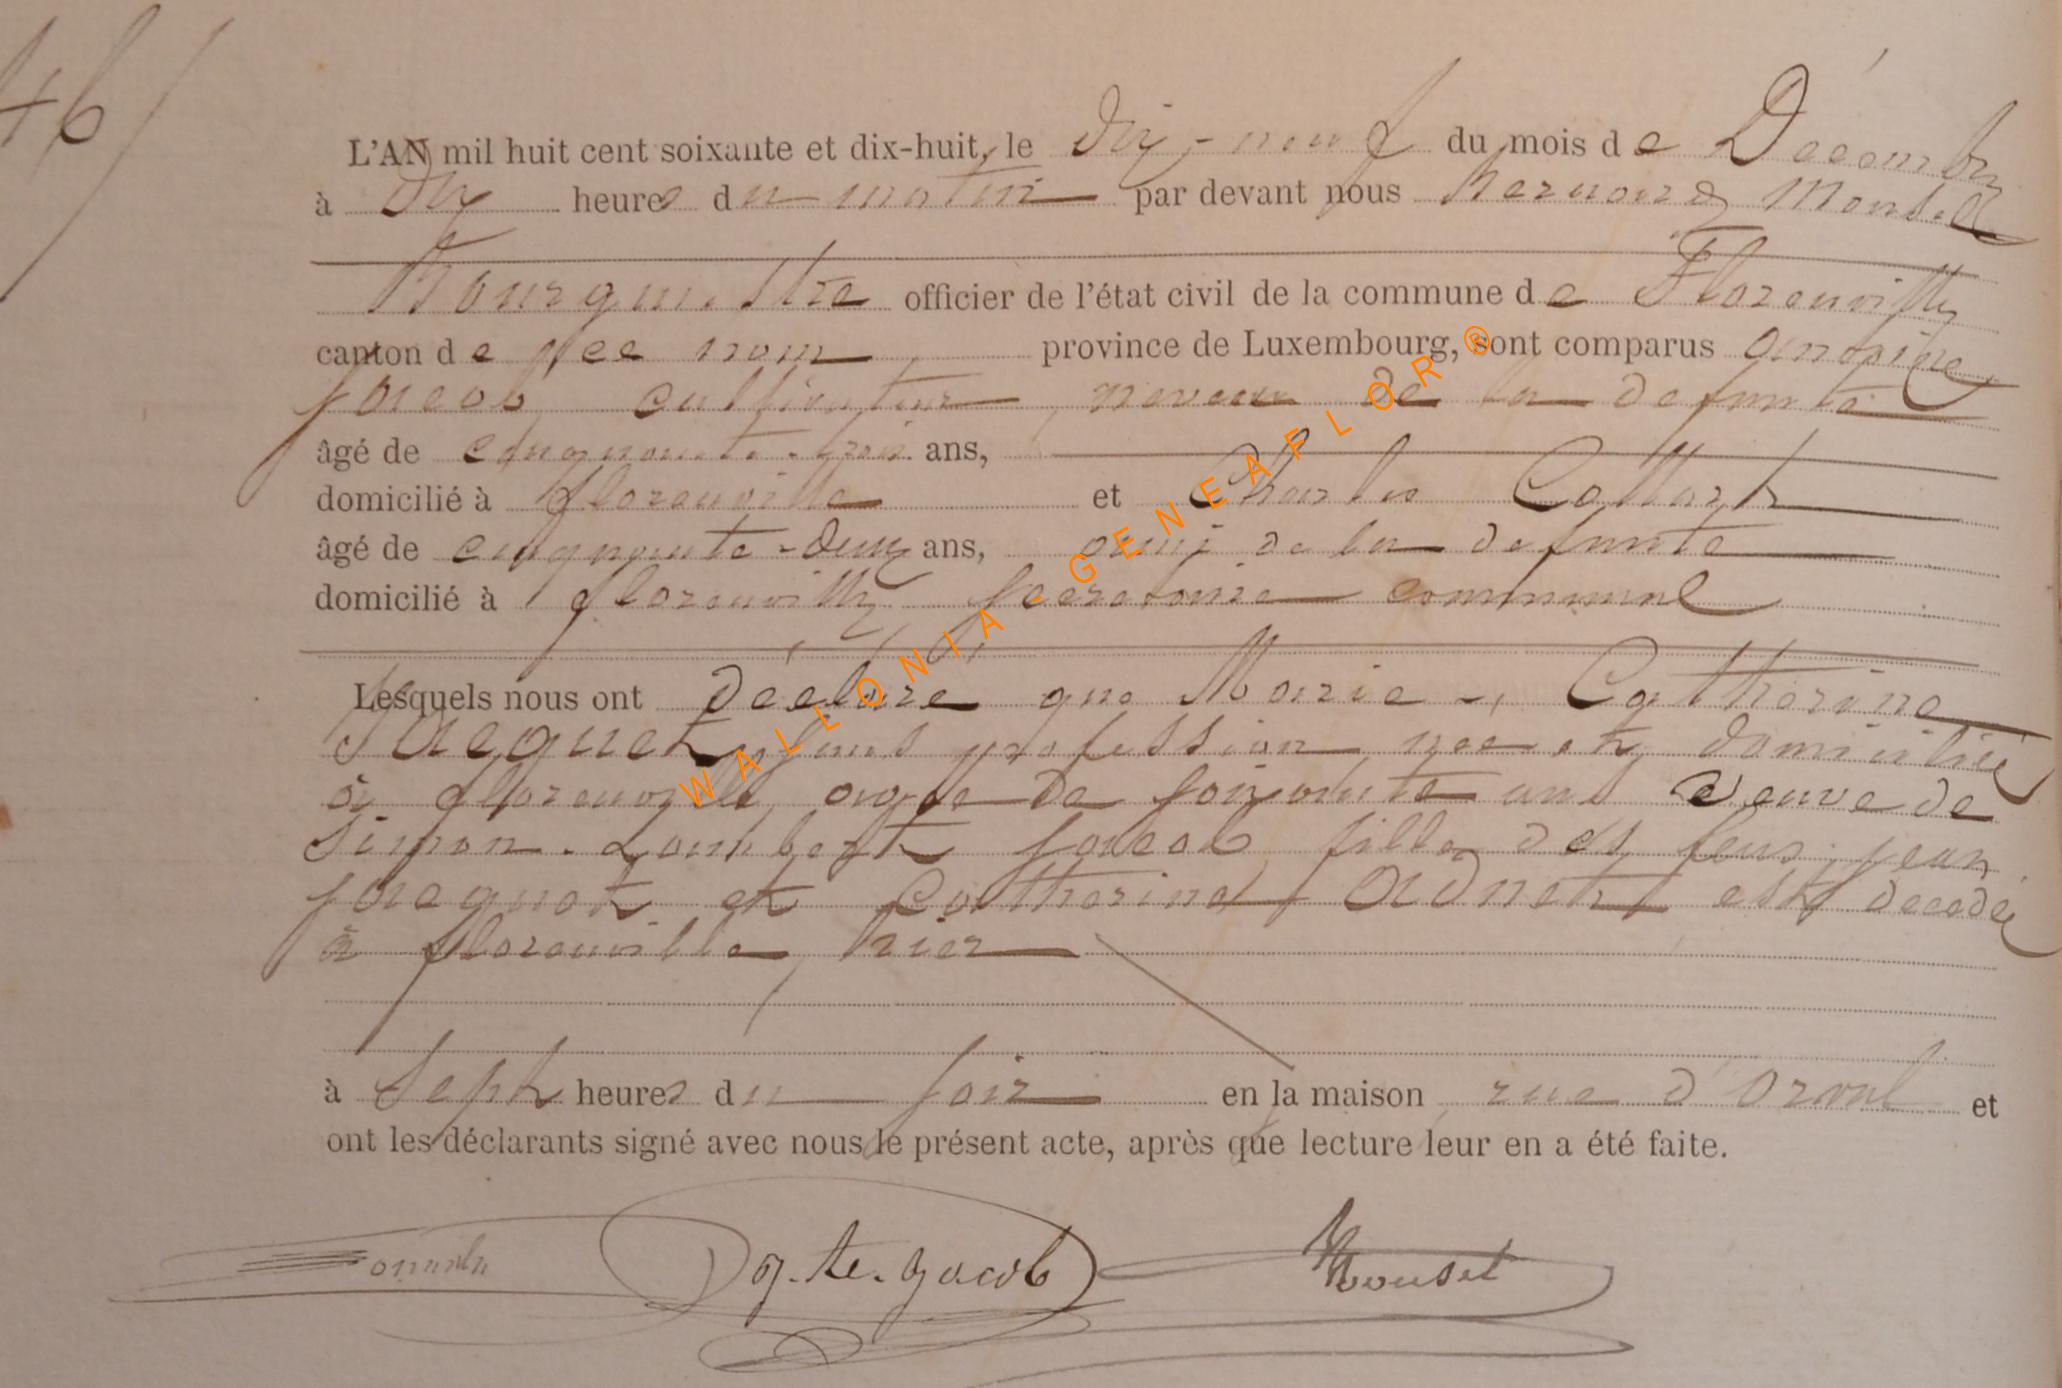 46
L'AN mil huit cent soixante et dix-huit, le dix-neuf du mois de Décembre
à dix heures du matin par devant nous Bernard Mousel
Bourgmestre officier de l'état civil de la commune de Florenville
canton de ce nom province de Luxembourg, sont comparus antoine
jacob cultivateur, neveu de la defunte
âgé de cinquante-trois ans,
domicilié à florenville et Charles Collart
âgé de cinquante-deux ans, ami de la defunte
domicilié à florenville secretaire communal
Lesquels nous ont déclaré que Marie-Catherine
Jacquet sans profession née et domicilié
à florenville, agée de soixante ans veuve de
simon-Lambert jacob fille des feus jean
jacquet et Catherine Adnet est decedé
à florenville, hier
à Sept heures du soir en la maison, rue d'Orval et
ont les déclarants signé avec nous le présent acte, après que lecture leur en a été faite.
Jacob Mousel
WALLONIA - GENEAFLOR®